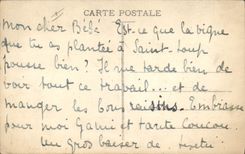 CARTE POSTALE
mon cher Bébé Est-ce que la vigne
que tu as plantée à Saint-Loup
pousse bien? Il me tarde bien de
voir tout ce travail... et de
manger les bons raisins. Embrasse
pour moi et tante Coucou.
Un gros baiser de